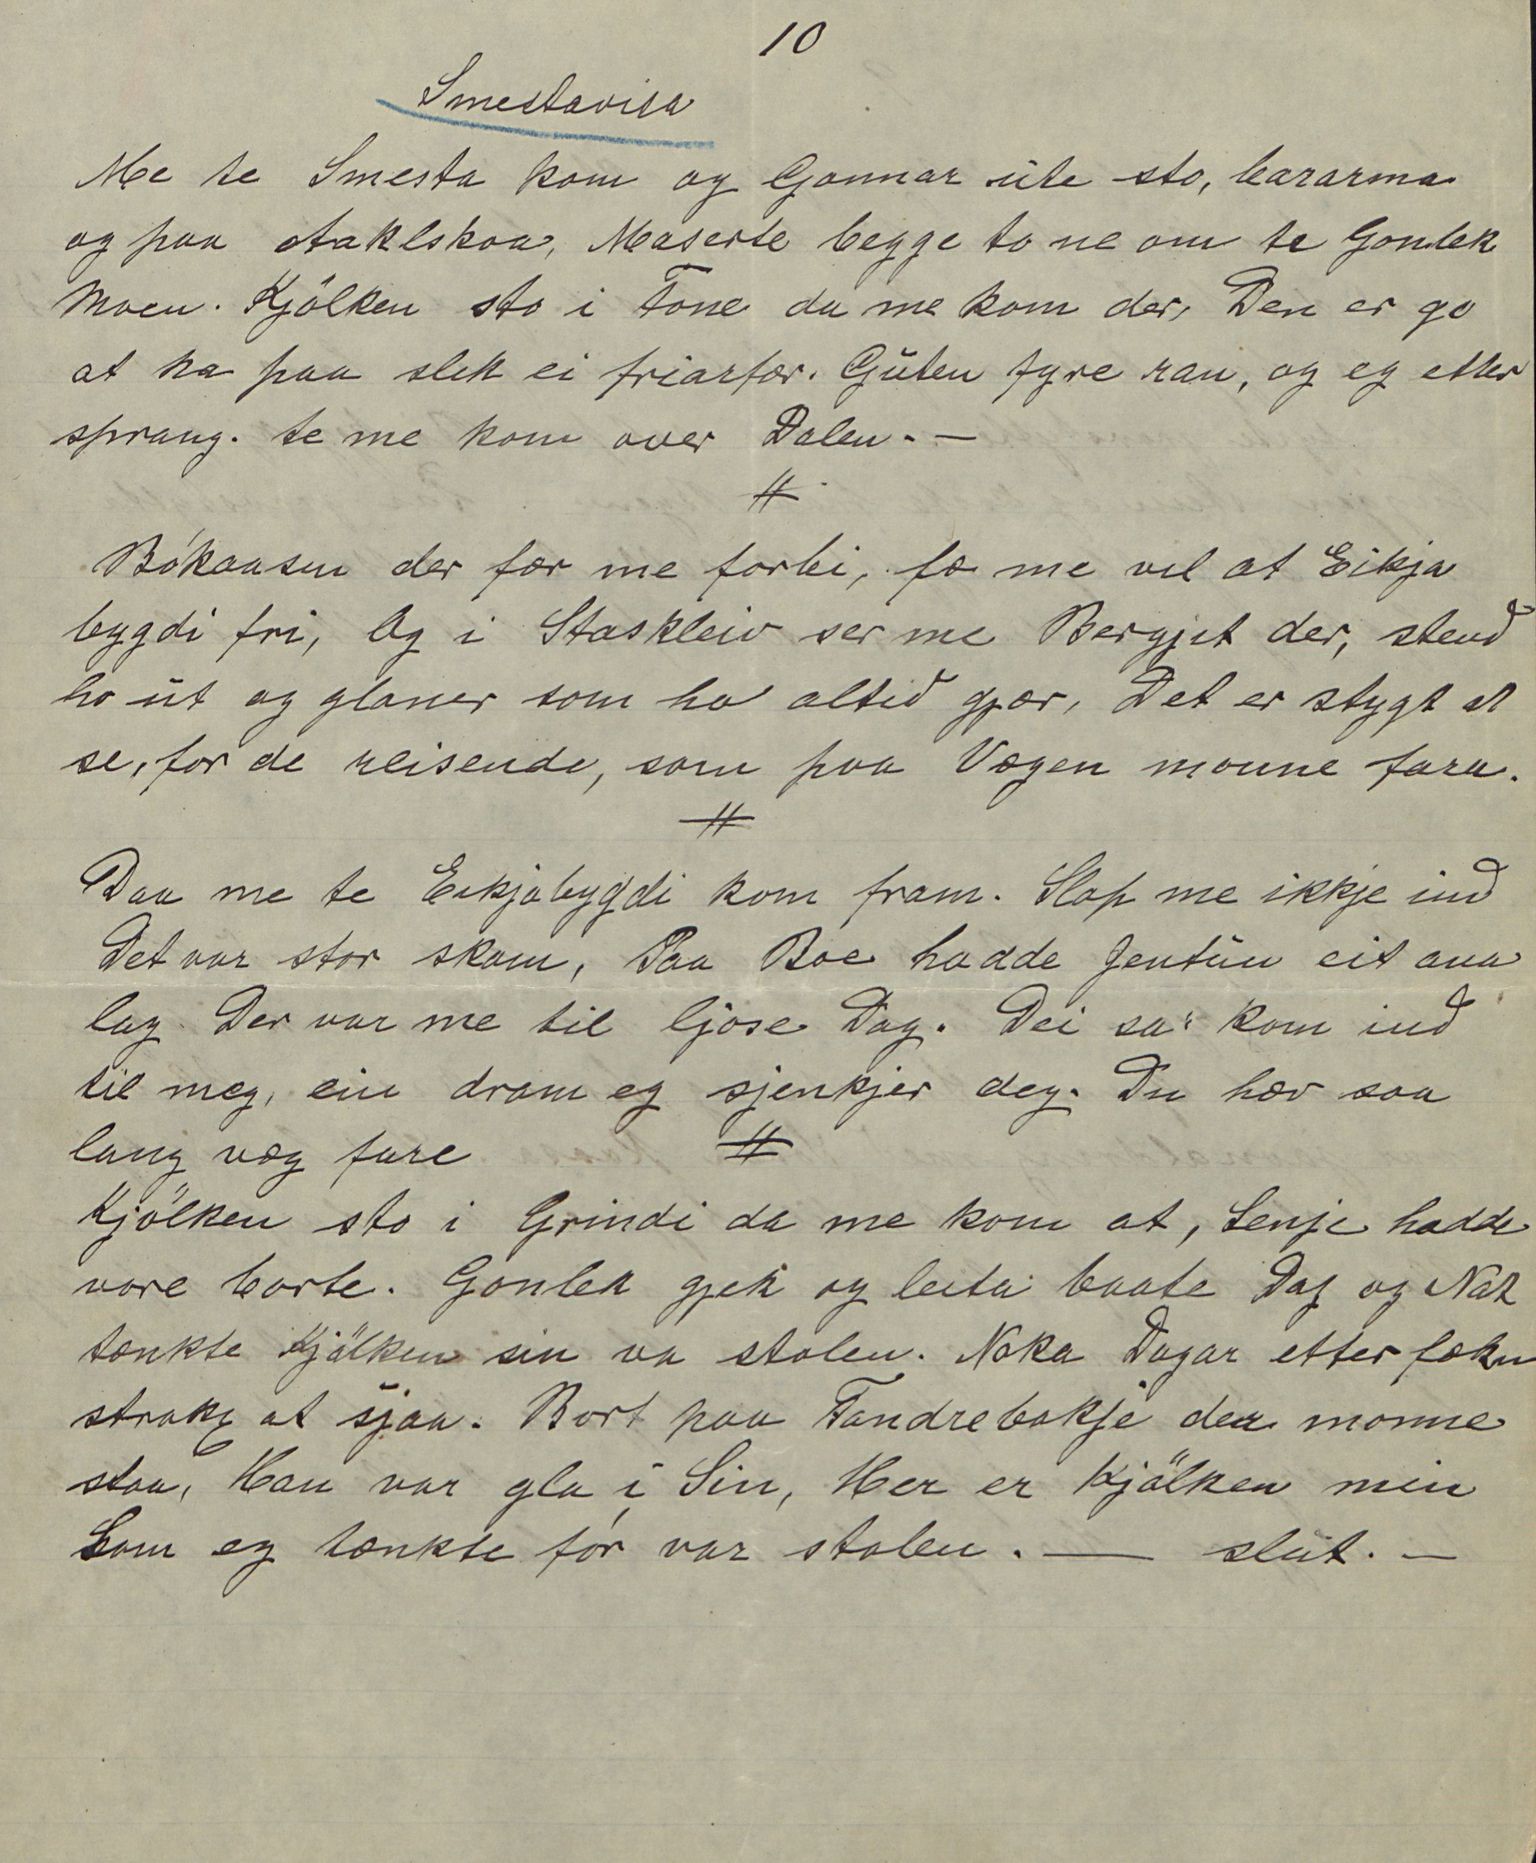 10
Smestavisa
Me te Smesta kom og Gonnar ute sto, bararma
og paa staklskoa, Maserte begge to ne om te Gonlek
Moen. Kjölken sto i Tone da me kom der, Den er go
at ha paa slek ei friarfær. Guten fyre ran, og eg etter
sprang. te me kom over Dalen. —
#
Bókaasen der før me forbi, fæ me vel at Eikja
bygdi fri, Og i Staskleiv ser me Bergjet der, stend
ho ut og glaner som ho altid gjær, Det er stygt at
se, for de reisende, som paa Vægen monne fara.
#
Daa me te Eikjabygdi kom fram. Slap me ikkje ind
Det var stor skam, Paa Boe hadde Jentun eit ana
lag. Der var me til ljose Dag. Dei sa: kom ind
til meg, ein dram eg sjenkjer deg. Du hær saa
lang væg fare #
Kjölken sto i Grindi da me kom at, Lenje hadde
vore borte. Gonlek gjek og leita baate Dag og Nat
tænkte Kjälken sin va stolen. Noka Dagar etter fækn
strakx at sjaa. Bort paa Tandrebakje der monne
staa, Han var gla i Sin, Her er Kjälken min
Som eg tænkte för var stolen. — slut. —